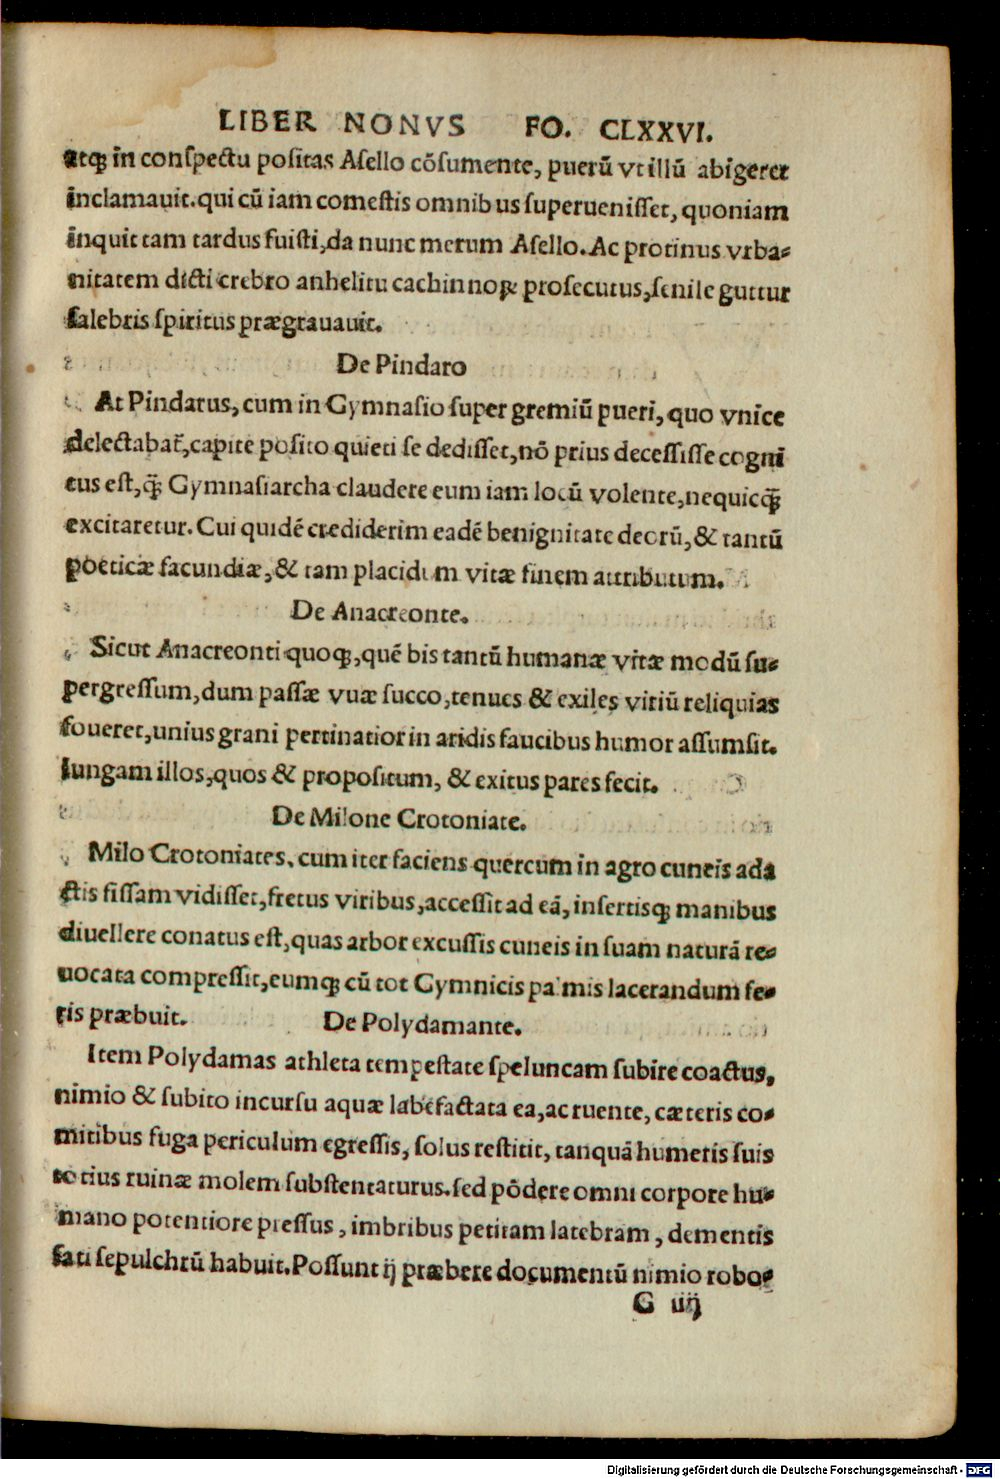 LIBER NONVS FO. CLXXVI.
atqꝫ in conspectu positas Asello cōsumente, puerū vt illū abigeret
inclamauit. qui cū iam comestis omnibus superuenisset, quoniam
inquit tam tardus fuisti, da nunc merum Asello. Ac protinus vrba-
nitatem dicti crebro anhelitu cachinnoꝝ prosecutus, senile guttur
salebris spiritus prægrauauit.
De Pindaro
At Pindarus, cum in Gymnasio super gremiū pueri, quo vnice
delectabat᷑, capite posito quieti se dedisset, nō prius decessisse cogni
tus est, q̄ꝫ Gymnasiarcha claudere eum iam locū volente, nequicq̄ꝫ
excitaretur. Cui quidē crediderim eadē benignitate deorū, & tantū
poeticæ facundiæ, & tam placidum vitæ finem attributum.
De Anacreonte.
Sicut Anacreonti quoqꝫ, quē bis tantū humanæ vitæ modū su-
pergressum, dum passæ vuæ succo, tenues & exiles viriū reliquias
foueret, unius grani pertinatior in aridis faucibus humor assumsit.
Iungam illos, quos & propositum, & exitus pares fecit.
De Milone Crotoniate.
Milo Crotoniates, cum iter faciens quercum in agro cuneis ada
ctis fissam vidisset, fretus viribus, accessit ad eā, insertisqꝫ manibus
diuellere conatus est, quas arbor excussis cuneis in suam naturā re-
uocata compressit, eumqꝫ cū tot Gymnicis palmis lacerandum fe-
ris præbuit. De Polydamante.
Item Polydamas athleta tempestate speluncam subire coactus,
nimio & subito incursu aquæ labefactata ea, ac ruente, cæteris co-
mitibus fuga periculum egressis, solus restitit, tanquā humeris suis
totius ruinæ molem substentaturus. sed pōdere omni corpore hu-
mano potentiore pressus, imbribus petitam latebram, dementis
fati sepulchrū habuit. Possunt ij præbere documentū nimio robo-
G iiij
Digitalisierung gefördert durch die Deutsche Forschungsgemeinschaft - DFG